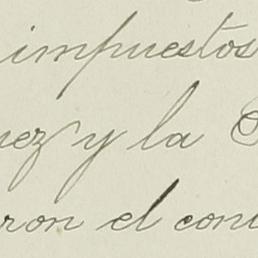 impuestos
nez y la
ron el con